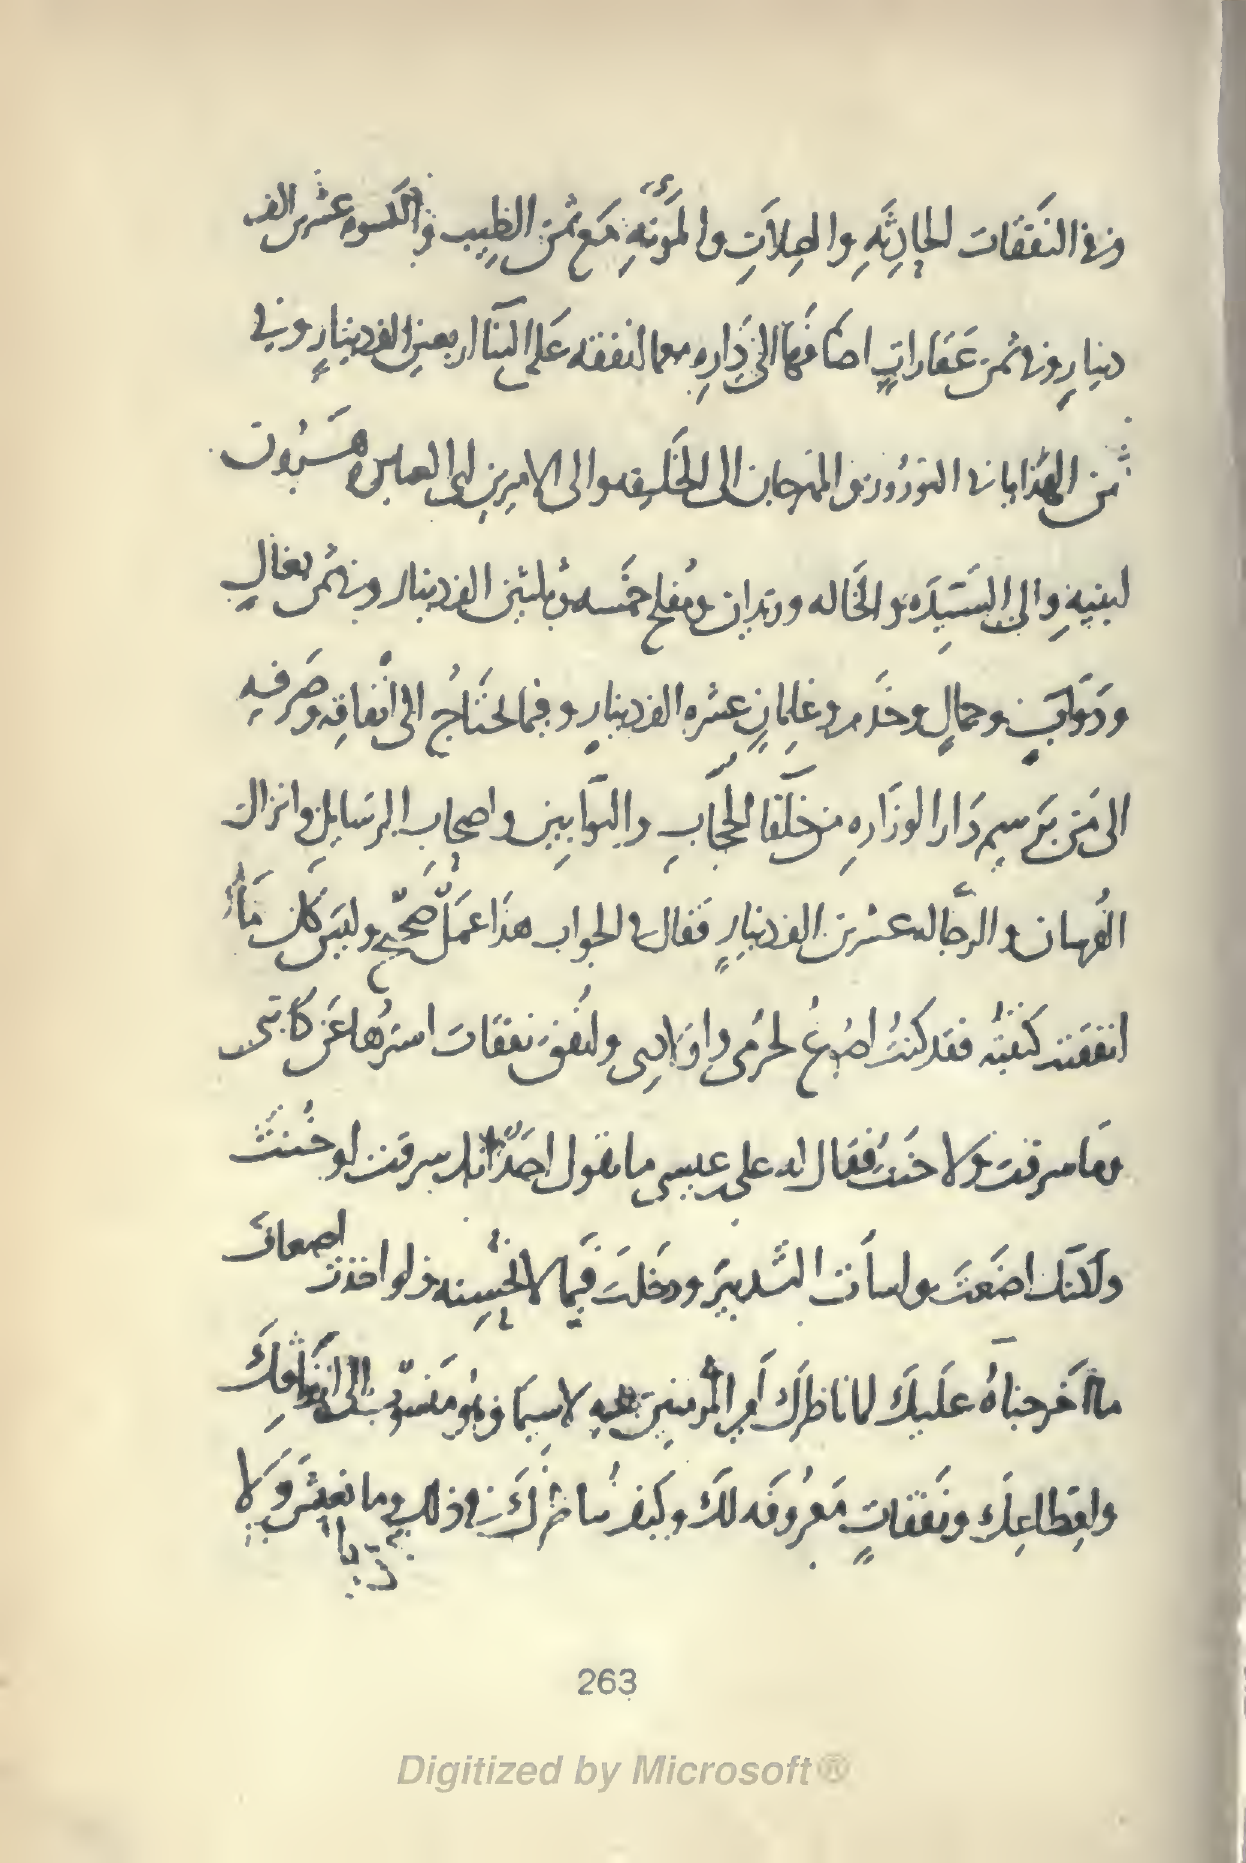 وفي النَفَقَات الحَادِثَهِ والصِلاَتِ والمَؤُنَهِ مَع ثمن الطِيب والكسوه عشرين الف
دينارٍ وفي ثمن عَقَاراتٍ اضافَها الى دَارِهِ مما انفقه عَلى البَنَا اربعين الف دينارٍ وفي
ثمن الهَدَايا في النوروز والمهرجان الى الخَليفه والى الاميرين ابي العباس وهَرُون
لبنيهِ والى السَيّدَه والخَاله وزيدان ومُفلح خمَسه وثلثين الف دينار وفي ثمن بغالٍ
ودَوَابٍ وجمالٍ وخَدَم وغلمانٍ عشره الف دينارٍ وفيما يحتَاجُ الى انفاقِه وصَرفه
الى مَن بَرسم دَار الوزَاره من خلَفا الحجَّابِ والبَوّابين واصحاب الرسَايلِ وانزال
الفُرسان والرجّاله عشرين الف دينارٍ فقال في الجواب هذَا عمَلٌ صحّيح وليسَ كل مَا
انفقته كتبتُه فقد كنتُ اصُوغُ لحُرمى واوَلادى وانُفق نفقَات استرُهَا عَن كاتبى
ومَا سرقت ولا خنتُ فقَال له على بن عيسى ما نقول احَدًا انك سرقت او خُنتَ
ولَكنك اضَعتَ واسات التَدبيرَ ودخَلتَ فيمَا لا تُحسِنه ولو اخذت اضعاف
ما اخرجناهُ عَليكَ لما ناظرَك أَمير المُؤمنين فيه لاسيمَا وهُو منسَوب الى ارتفاعِكَ
واقطاعِكَ ونفَقاتٍ مَعرُوفَه لكَ وكيف نُناظركَ في ذلك وما نعيش ولا
ربّانا
263
Digitized by Microsoft®